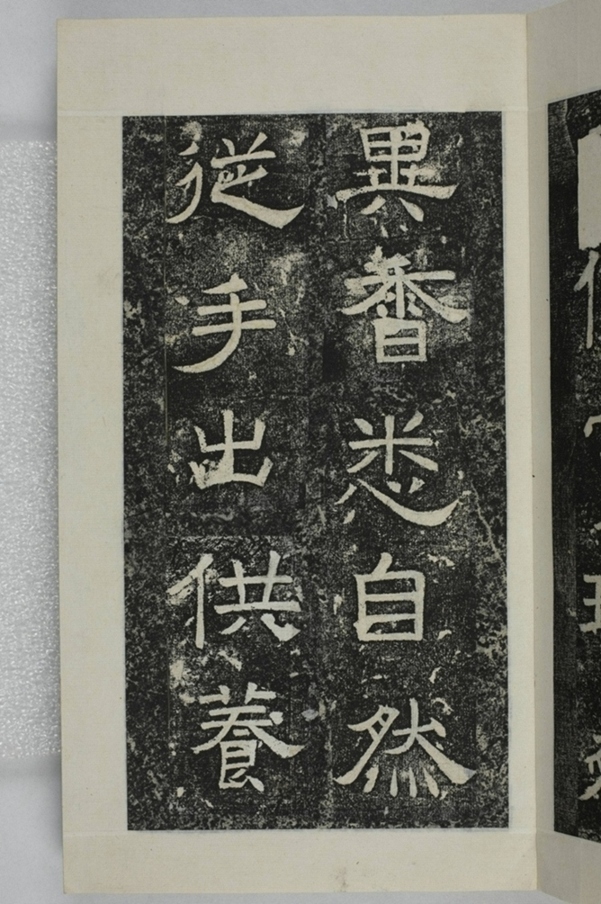 異香悉自然
從手出供養